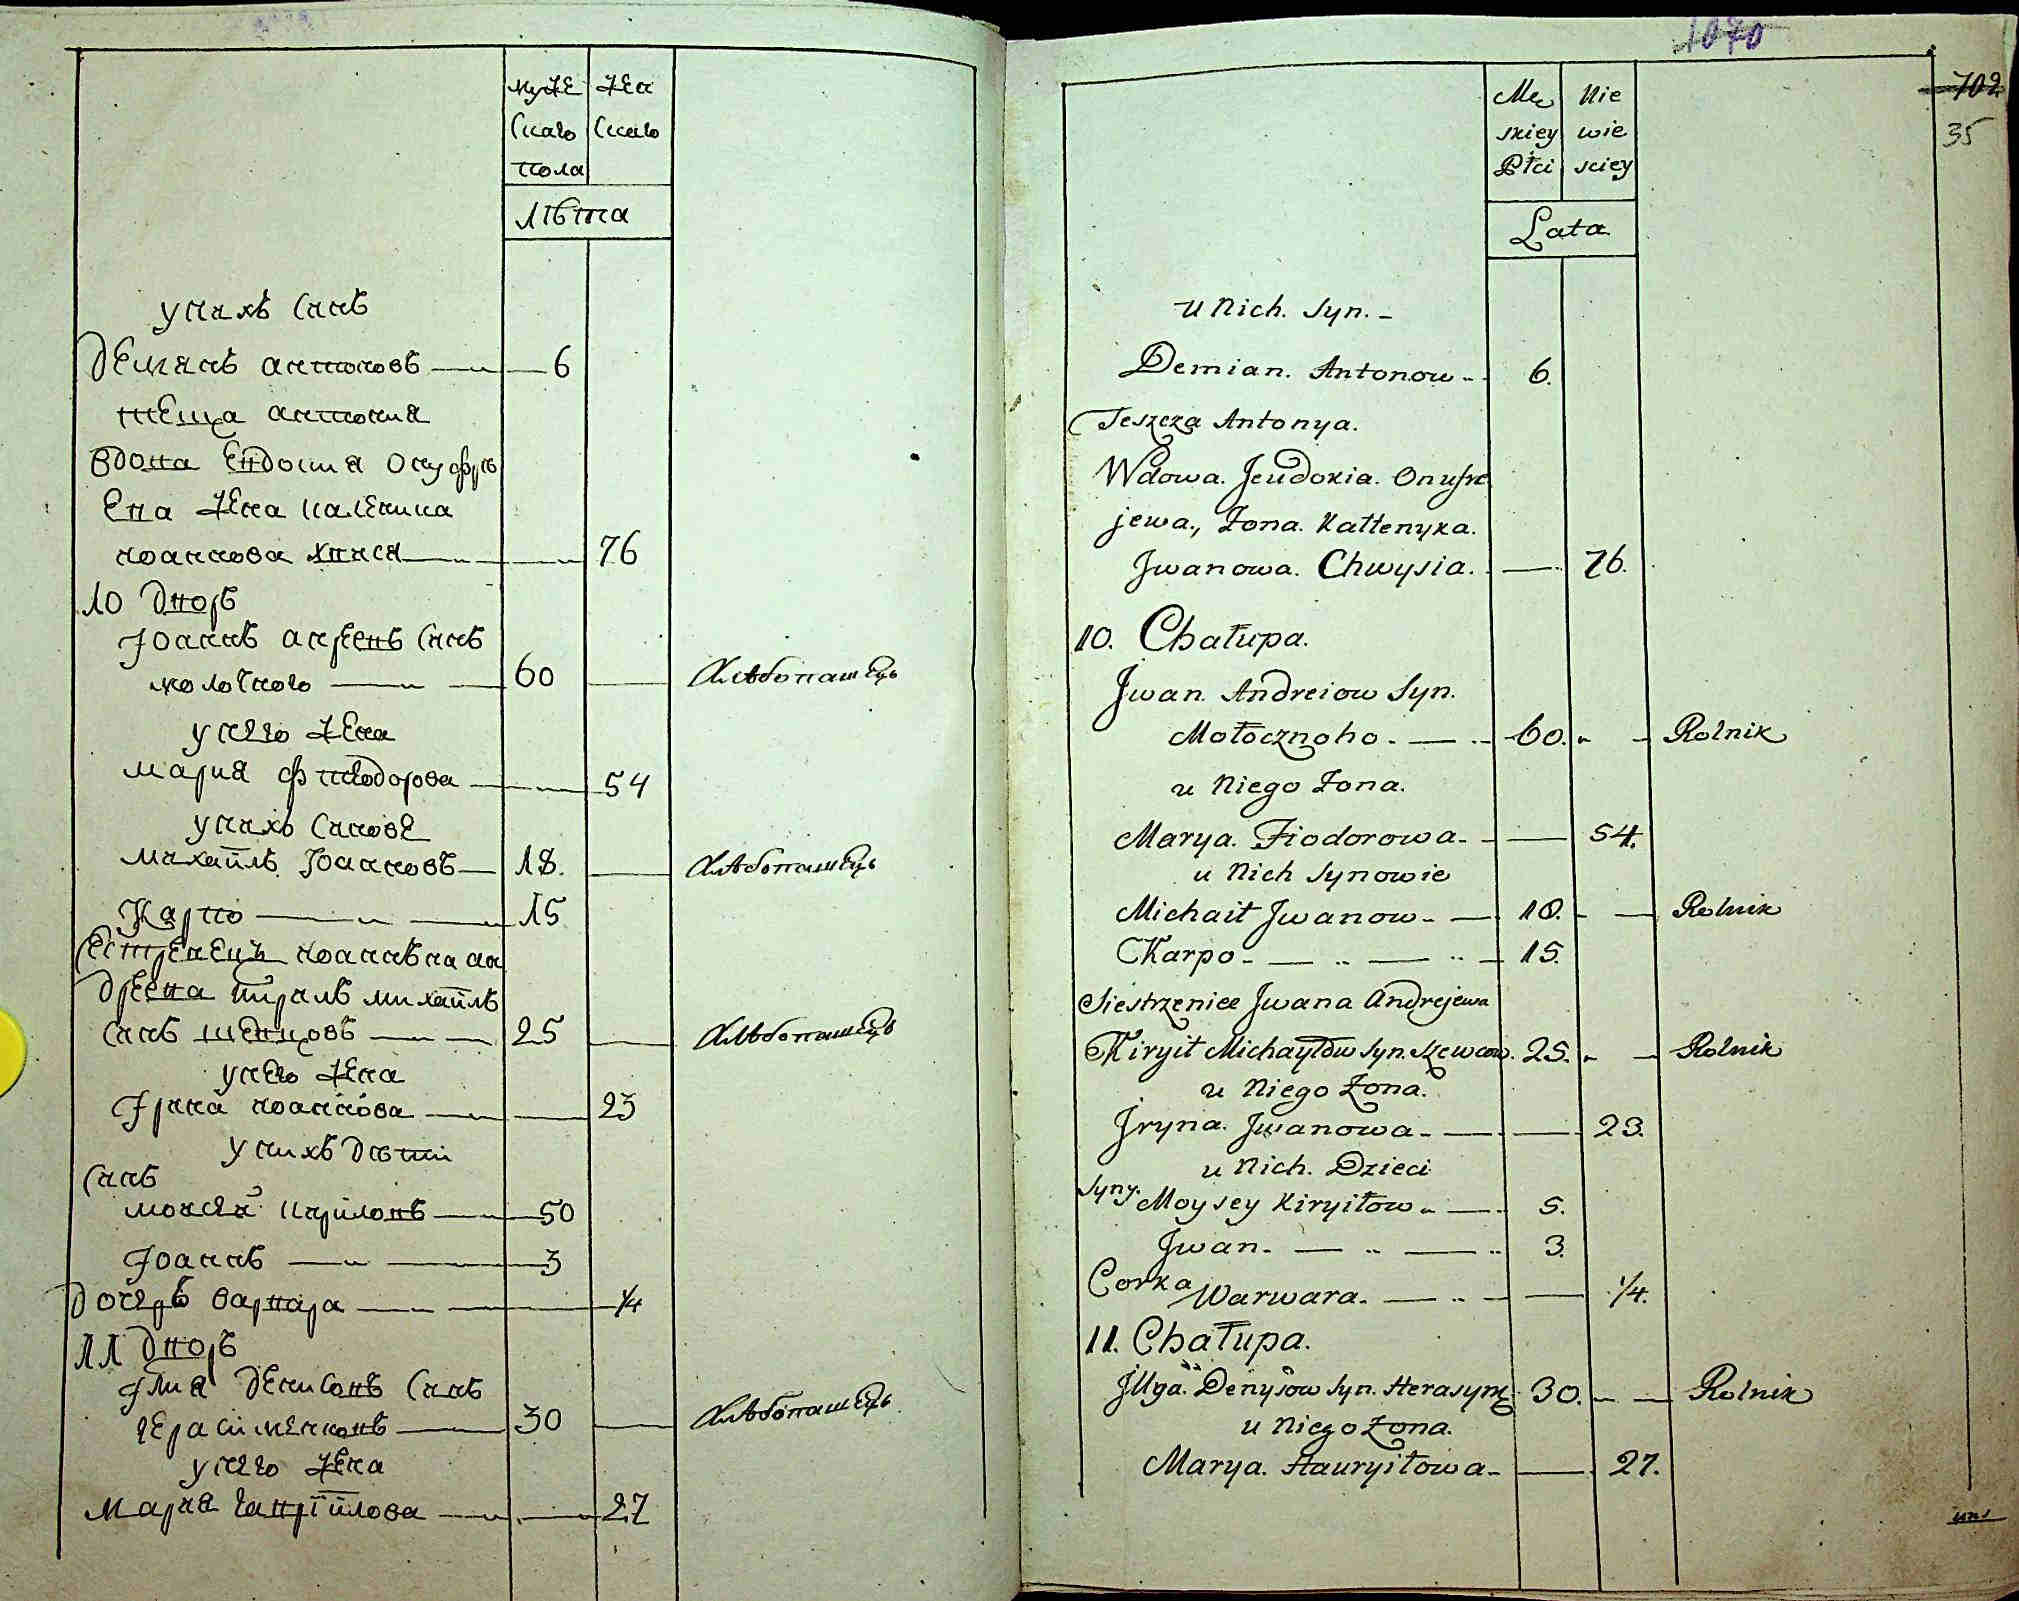 муже жен
скаго скаго
пола
лѣта
у нихъ сынъ
Демянъ антоновъ 6
теща антония
вдова Евдокия онуфрѣ
ева жена каленика
иоаннова хвися 76
10 дворъ
Іоаннъ андреевъ сынъ
молочного 60 хлѣбопашецъ
у него жена
мария фиодорова 54
у нихъ сынове
михайлъ Іоанновъ 18. хлѣбопашецъ
Карпо 15
сестренецъ иоаннъна ан
дреева кирилъ михайлъ
сынъ шевцовъ 25 хлѣбопашецъ
у него жена
Ірина иоаннова 23
у нихъ дѣти
сынъ
моисей кириловъ 50
Іоаннъ 3
дочеръ варвара 1/4
11 дворъ
Ілия денисовъ сынъ
герасименковъ 30 хлѣбопашецъ
у него жена
мария гавриилова 27
1070
702
35
Mę Nie
skiey wie
Płci sciey
Lata
u Nich. Syn.
Demian. Antonow 6.
Teszcza Antonya.
Wdowa. Jeudokia. Onufre
jewa., Żona. Kallenyka.
Jwanowa. Chwysia. 76.
10. Chałupa.
Jwan. Andreiow Syn.
Mołocznoho. 60. Rolnik
u Niego Żona.
Marya. Fiodorowa. 54.
u Nich Synowie
Michaił Jwanow 18. Rolnik
Karpo 15.
Siestrzeniec Jwana Andrejewa
Kiryił Michayłow Syn. Szewcow. 25. Rolnik
u Niego Żona.
Jryna. Jwanowa 23.
u Nich. Dzieci
Syny. Moysey Kiryiłow 5.
Jwan. 3.
Corka Warwara. 1/4.
11. Chałupa.
Jllya. Denysow Syn. Herasym. 30. Rolnik
u Niego Żona.
Marya. Hauryiłowa 27.